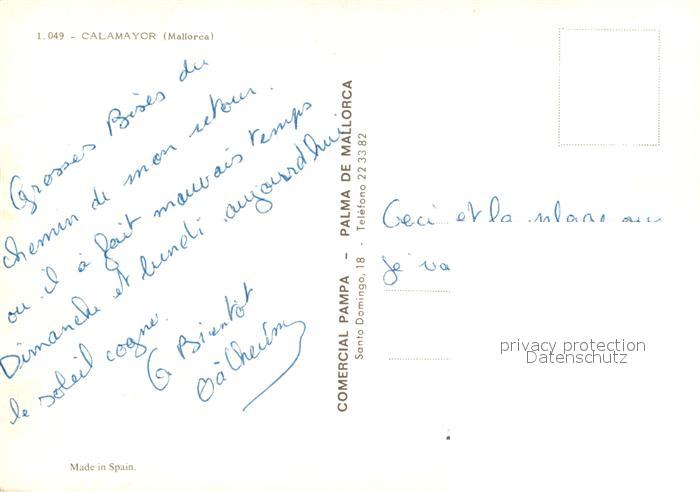 1.049 - CALAMAYOR (Mallorca)
Grosses Bises du
chemin de mon retour.
ou il à fait mauvais temps
Dimanche et lundi, aujourd'hui
le soleil cogne.
A Bientôt
COMERCIAL PAMPA - PALMA DE MALLORCA
Santo Domingo, 18 - Teléfono 22 33 82
Ceci et la
je va
privacy protection
Datenschutz
Made in Spain.